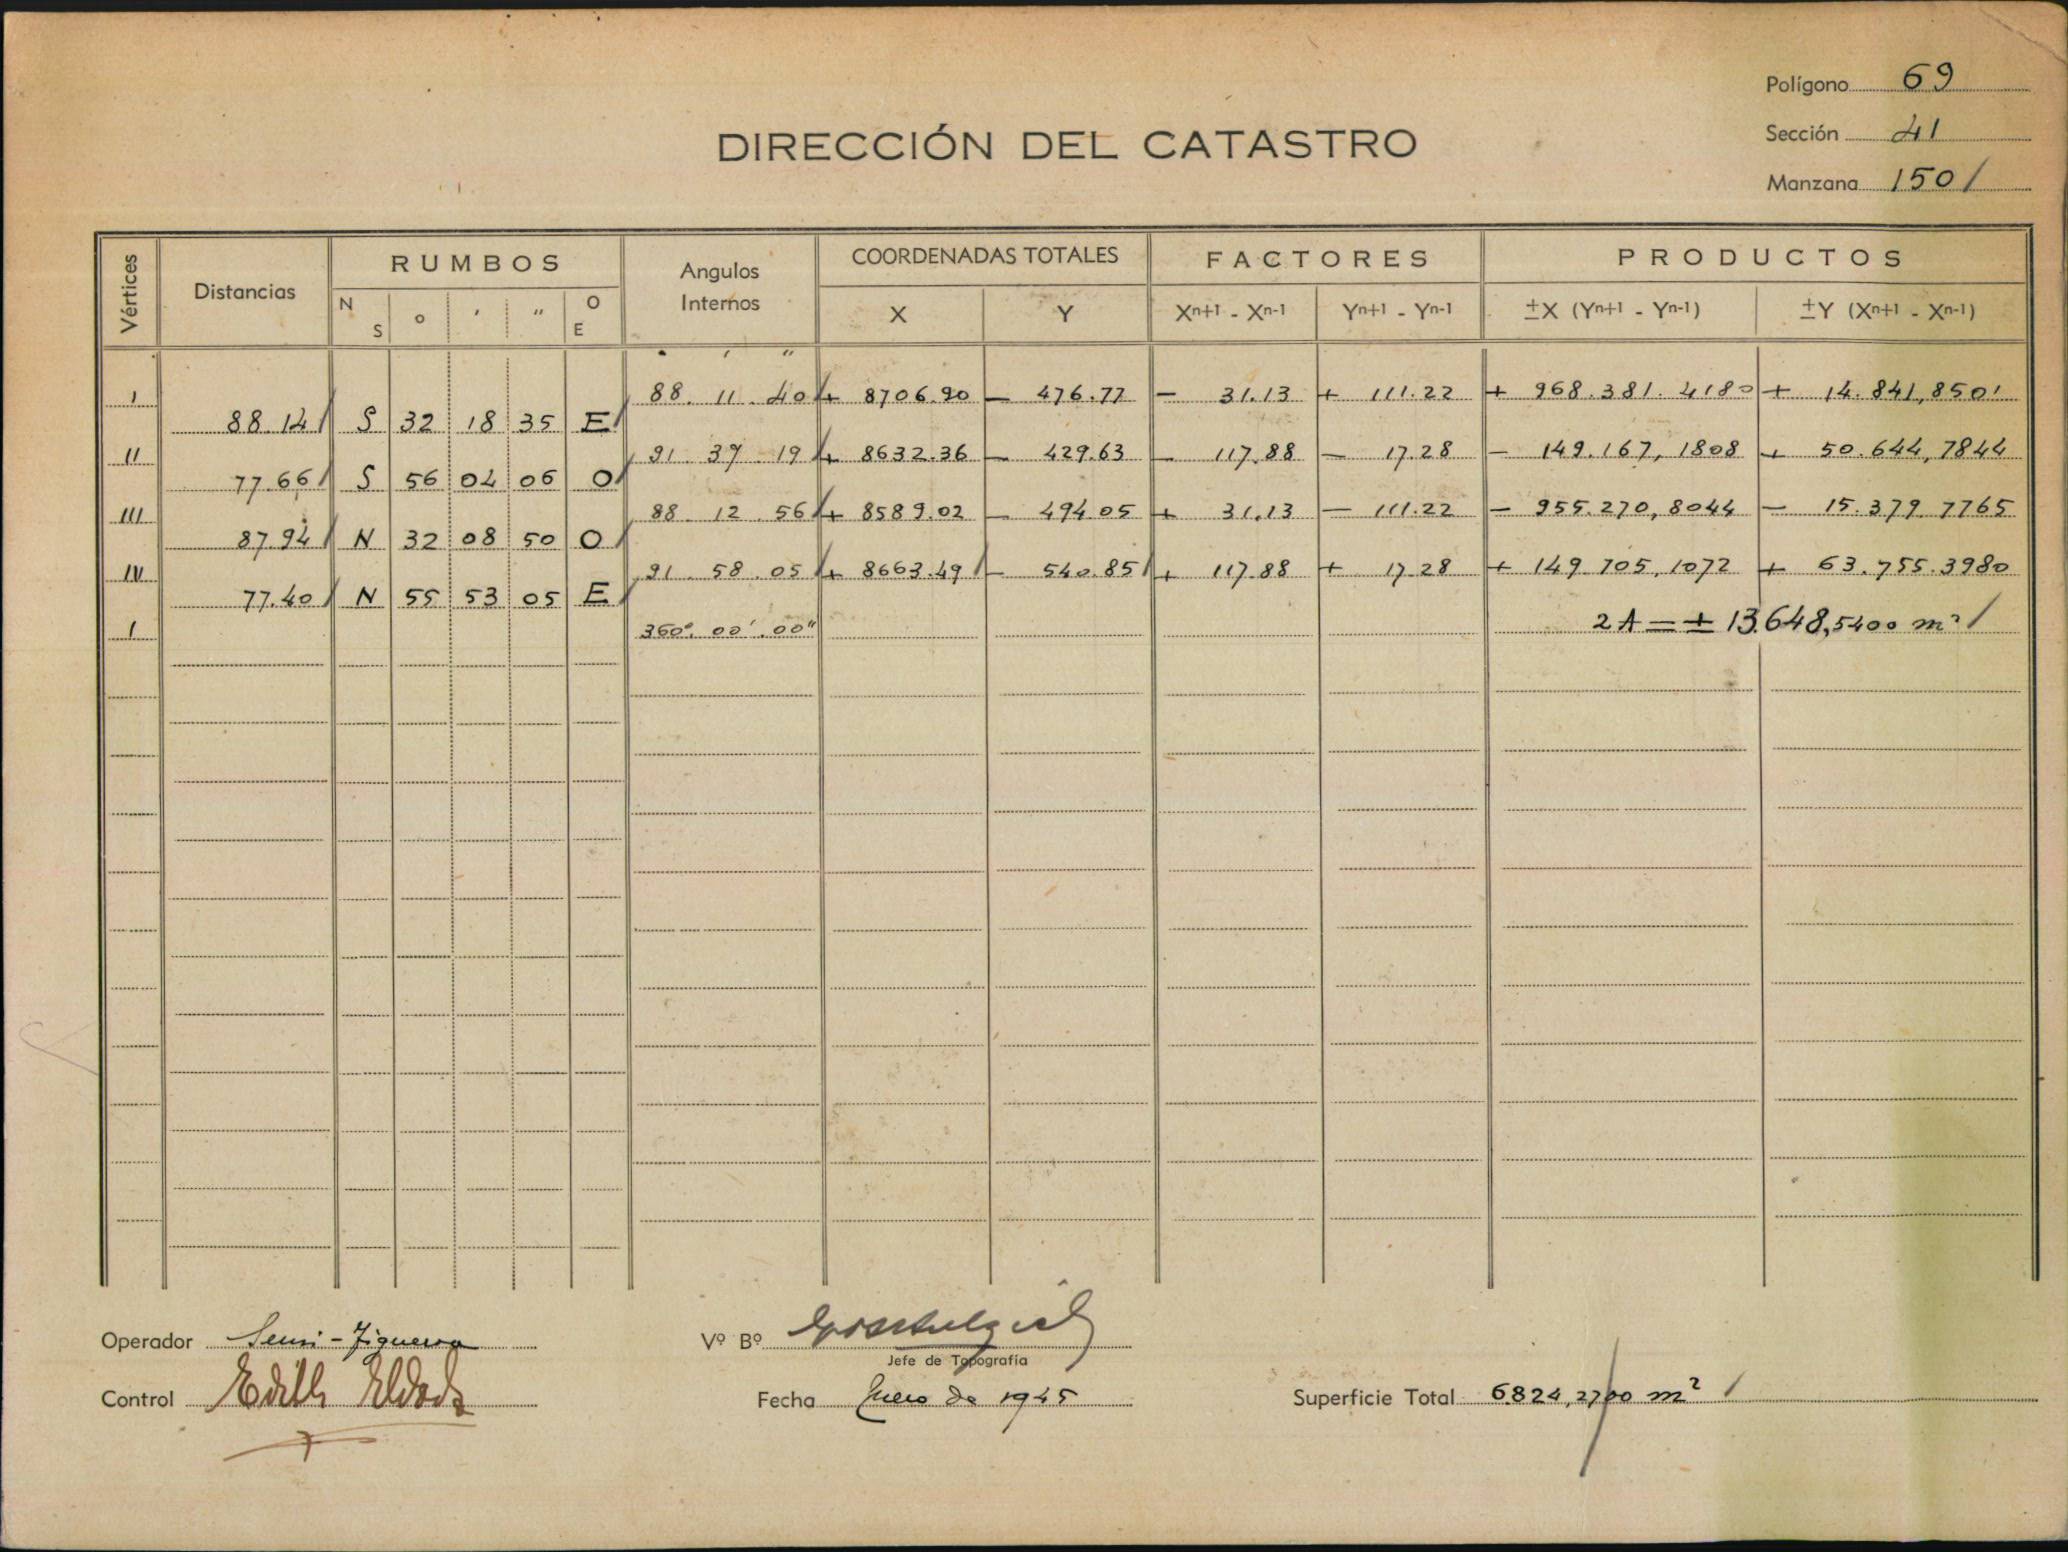 Polígono 69
DIRECCIÓN DEL CATASTRO
Sección 41
Manzana 150
Vértices Distancias RUMBOS Angulos Internos COORDENADAS TOTALES FACTORES PRODUCTOS
N S o ' " O E X Y Xn+1 - Xn-1 Yn+1 - Yn-1 ±X (Yn+1 - Yn-1) ±Y (Xn+1 - Xn-1)
° ' "
I 88. 11. 40 + 8706.90 — 476.77 — 31.13 + 111.22 + 968.381.4180 + 14.841,8501
88.14 S 32 18 35 E
II 91. 37. 19 + 8632.36 — 429.63 — 117.88 — 17.28 — 149.167,1808 + 50.644,7844
77.66 S 56 04 06 O
III 88 12 56 + 8589.02 — 494.05 + 31.13 — 111.22 — 955.270,8044 — 15.379.7765
87.94 N 32 08 50 O
IV 91. 58. 05 + 8663.49 — 540.85 + 117.88 + 17.28 + 149.705,1072 + 63.755.3980
77.40 N 55 53 05 E
I 360° 00' 00" 2A = ± 13.648,5400 m²
Operador - Figueroa Vº Bº
Jefe de Topografía
Control Edith Fecha Enero de 1945 Superficie Total 6.824,2700 m²